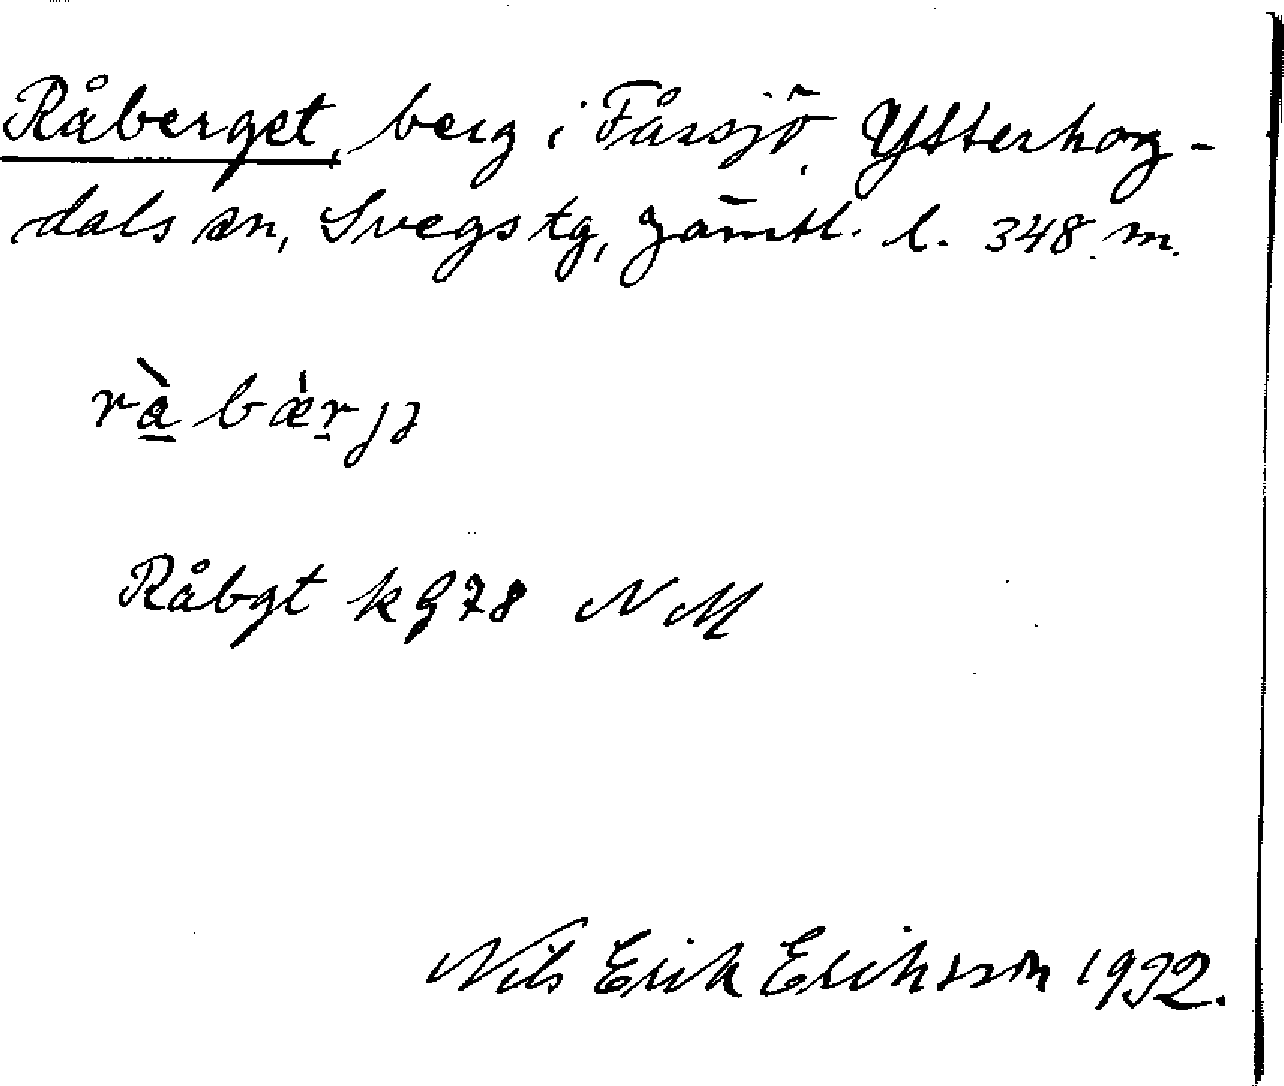 Råberget, berg i Fårsjö, Ytterhog-
dals sn, Svegs tg, Jämtl. l. 348 m.
rà̱ bæ̍ṟjə
Råbgt kg 78 NM
Nils Erik Eriksson 1932.